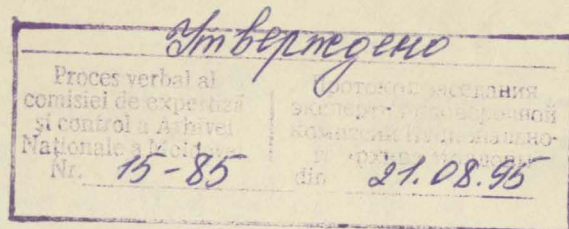 Утверждено
Proces verbal al
comisiei de expertiză
și control a Arhivei
Naționale a Moldovei
Nr. 15-85
Протокол заседания
экспертно-проверочной
комиссии Национально-
го архива Молдовы
din 21.08.95